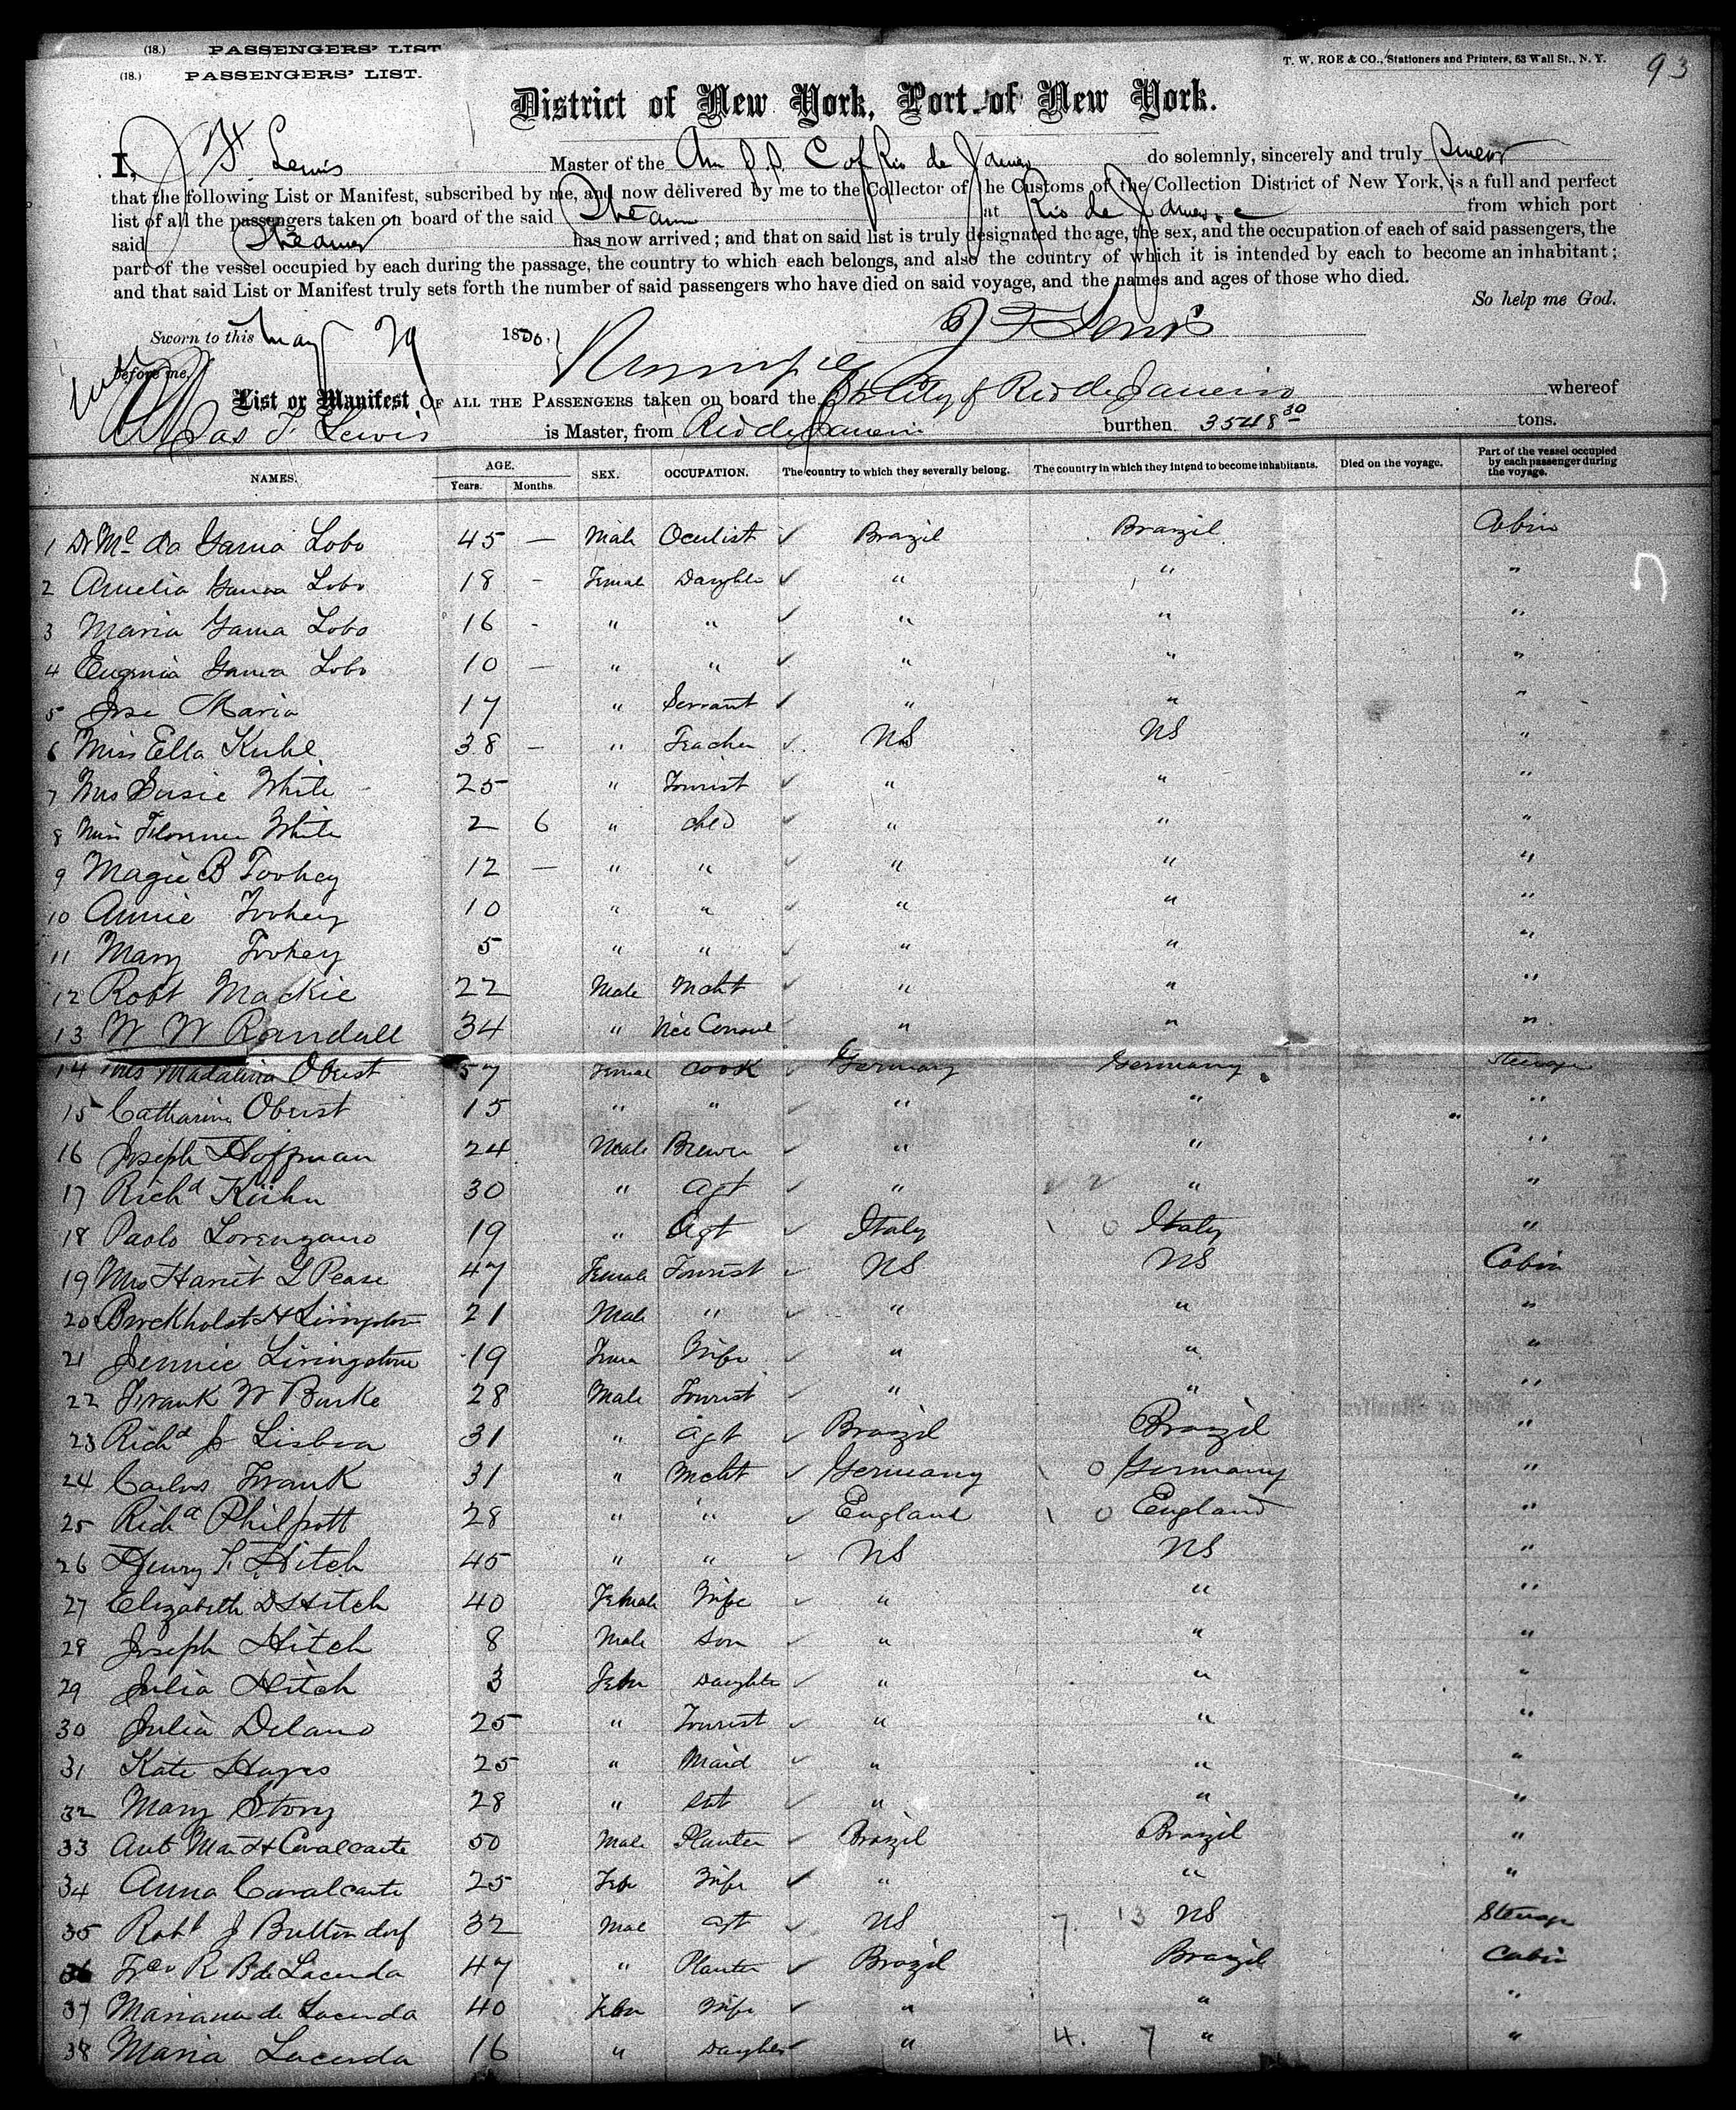 (18.) PASSENGERS' LIST
(18.) PASSENGERS' LIST.
T. W. ROE & CO., Stationers and Printers, 63 Wall St., N. Y.
93
District of New York, Port of New York.
I, Lewis Master of the Am S.S. C of Rio de Janeiro do solemnly, sincerely and truly swear
that the following List or Manifest, subscribed by me, and now delivered by me to the Collector of the Customs of the Collection District of New York, is a full and perfect
list of all the passengers taken on board of the said Steamer at Rio de Janeiro from which port
said Steamer has now arrived; and that on said list is truly designated the age, the sex, and the occupation of each of said passengers, the
part of the vessel occupied by each during the passage, the country to which each belongs, and also the country of which it is intended by each to become an inhabitant;
and that said List or Manifest truly sets forth the number of said passengers who have died on said voyage, and the names and ages of those who died.
So help me God.
Sworn to this May 29 1880, J F Lewis
before me,
List or Manifest OF ALL THE PASSENGERS taken on board the City of Rio de Janeiro whereof
Jas F Lewis is Master, from Rio de Janeiro burthen 3548 30 tons.
NAMES. AGE. Years. Months. SEX. OCCUPATION. The country to which they severally belong. The country in which they intend to become inhabitants. Died on the voyage. Part of the vessel occupied by each passenger during the voyage.
1 Dr Mel da Gama Lobo 45 — Male Oculist ✓ Brazil Brazil Cabin
2 Amelia Gama Lobo 18 - Female Daughte ✓ " " "
3 Maria Gama Lobo 16 - " " ✓ " " "
4 Eugenia Gama Lobo 10 — " " ✓ " " "
5 Jose Maria 17 " Servant ✓ " " "
6 Miss Ella Kuhl 38 — " Teacher ✓ US US "
7 Mrs Susie White 25 " Tourist ✓ " " "
8 Miss Florence White 2 6 " child ✓ " " "
9 Magie B Toohey 12 — " " ✓ " " "
10 Annie Toohey 10 " " ✓ " " "
11 Mary Toohey 5 " " ✓ " " "
12 Robt Mackie 22 Male Mcht ✓ " " "
13 W W Randall 34 " Vice Consul ✓ " " "
14 Mrs Madalina Oberst 57 Female Cook ✓ Germany Germany Steerage
15 Catharine Oberst 15 " " ✓ " " "
16 Joseph Hoffman 24 Male Brewer ✓ " " "
17 Richd Kühn 30 " Agt ✓ " " "
18 Paolo Lorenzano 19 " Agt ✓ Italy 0 Italy "
19 Mrs Hariet L Pease 47 Female Tourist ✓ US US Cabin
20 Brockholst H Livingston 21 Male " ✓ " " "
21 Jennie Livingstone 19 Fema Wife ✓ " " "
22 Frank W Burke 28 Male Tourist ✓ " " "
23 Richd J Lisboa 31 " Agt ✓ Brazil Brazil "
24 Carlos Frank 31 " Mcht ✓ Germany 0 Germany "
25 Richd Philpott 28 " " ✓ England 0 England "
26 Henry F. Hitch 45 " " ✓ US US "
27 Elizabeth D Hitch 40 Female Wife ✓ " " "
28 Joseph Hitch 8 Male Son ✓ " " "
29 Julia Hitch 3 Fem Daughte ✓ " " "
30 Julia Delano 25 " Tourist ✓ " " "
31 Kate Hayes 25 " Maid ✓ " " "
32 Mary Story 28 " svt ✓ " " "
33 Ant Mar H Cavalcante 50 Male Planter ✓ Brazil Brazil "
34 Anna Cavalcante 25 Fem Wife ✓ " " "
35 Robt J Buttendorf 32 Mal agt ✓ US 7. 13 US Steerage
36 R B de Lacerda 47 " Planter ✓ Brazil Brazil Cabin
37 Mariana de Lacerda 40 Fem Wife ✓ " " "
38 Maria Lacerda 16 " Daughter ✓ " 4. 7 " "